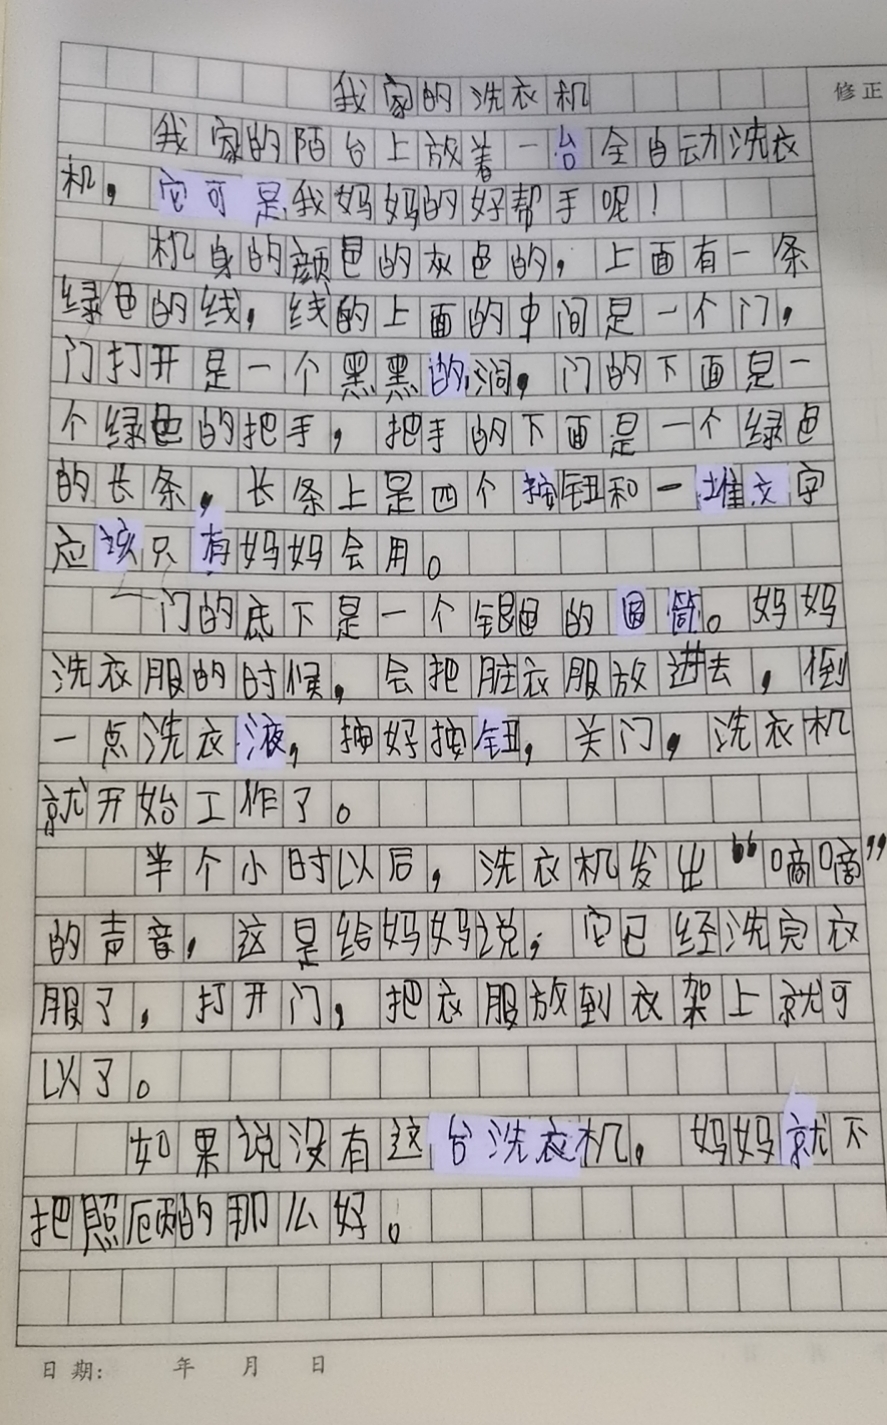 我家的洗衣机
修正
我家的陌台上放着一台全自动洗衣
机，它可是我妈妈的好帮手呢！
机身的颜色的灰色的，上面有一条
绿色的线，线的上面的中间是一个门，
门打开是一个黑黑的洞，门的下面是一
个绿色的把手，把手的下面是一个绿色
的长条，长条上是四个按钮和一堆文字
应该只有妈妈会用。
门的底下是一个银色的圆筒。妈妈
洗衣服的时候，会把脏衣服放进去，倒
一点洗衣液，按好按钮，关门，洗衣机
就开始工作了。
半个小时以后，洗衣机发出“嘀嘀”
的声音，这是给妈妈说，它已经洗完衣
服了，打开门，把衣服放到衣架上就可
以了。
如果说没有这台洗衣机，妈妈就不
把照的那么好。
日期： 年 月 日